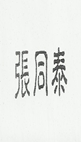 張同泰